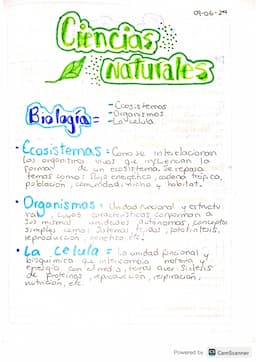 09-06-24
Ciencias
Naturales
Biología =
- Ecosistemas
- Organismos
- La celula
• Ecosistemas = Como se interelacionan
los organismos vivos que influencian la
forma de un ecosistema. Se repasa
temas como: flujo energetico, cadena trofica,
población, comunidad, nicho y habitat.
• Organismos = Unidad funcional y estructu
ral, cuyas caracteristicas conforman a
su misma unidades autonomas, conceptos
simples como: Sistemas, tejidos, fotosintesis,
reproducción, etc.
• La celula = la unidad funcional y
bioquimica que intercambia materia y
energia con el medio, temas aver: Sintesis
de proteinas, reproducción, respiración,
nutrición, etc.
Powered by CS CamScanner